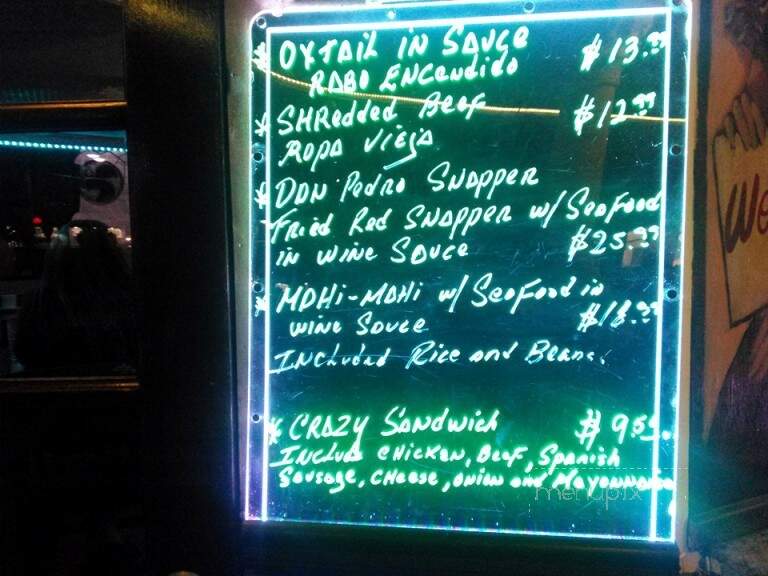 * OXTAIL IN SAUCE $13.99
RABO ENCENDIDO
* SHRedded Beef $12.99
ROPA VIEJA
* DON Pedro SNAPPER
Fried Red SNAPPER w/ SeaFood
in wine SAUCE $25.99
* MAHi-MAHi w/ SeaFood in
wine Sauce $18.99
INCluded Rice and Beans.
* CRAZY SANDwich
INClude CHICKEN, Beef, SPANish
SAUSAGE, CHeese, ONION and MAYONNAISE
menupix
We